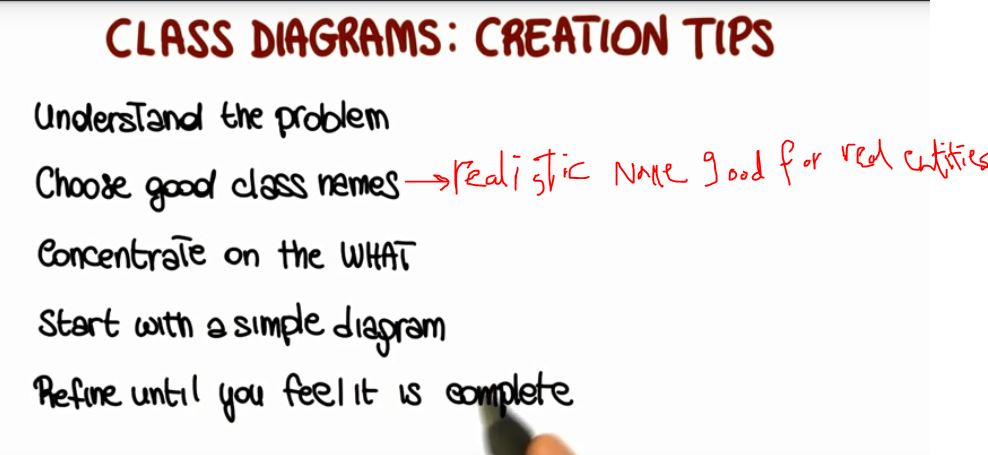 CLASS DIAGRAMS: CREATION TIPS
Understand the problem
Choose good class names → realistic name good for real entities
Concentrate on the WHAT
Start with a simple diagram
Refine until you feel it is complete